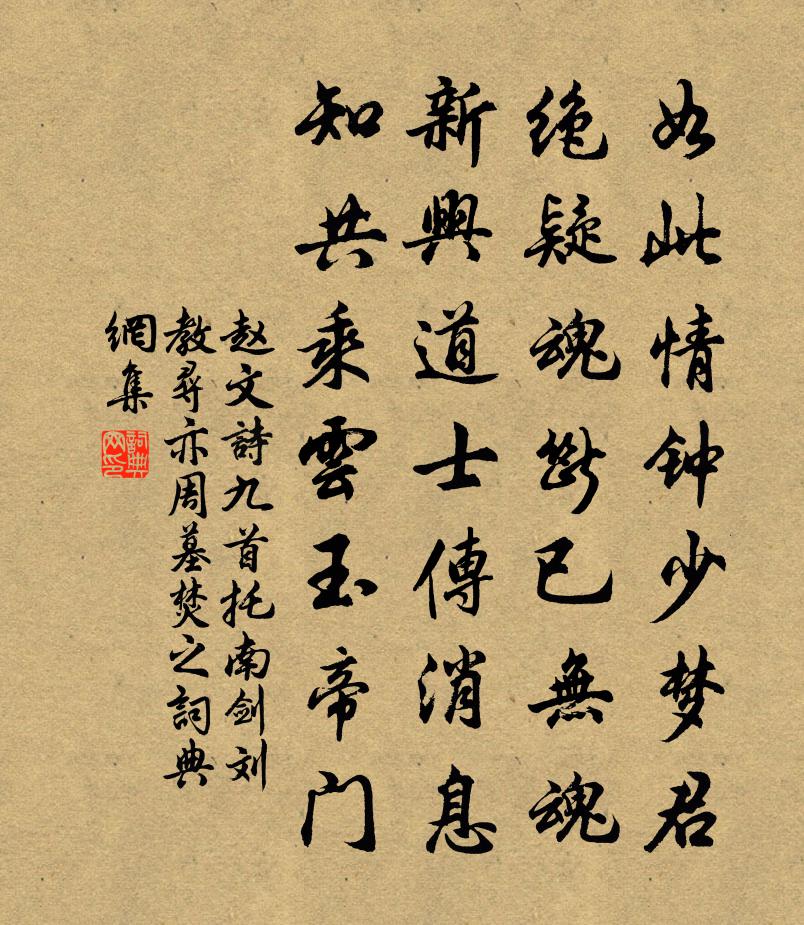 如此情钟少梦君
绝疑魂断已無魂
新興道士傳消息
知共乘雲玉帝门
赵文詩九首托南剑刘
教尋亦周墓焚之詞典
網集
詞典网印